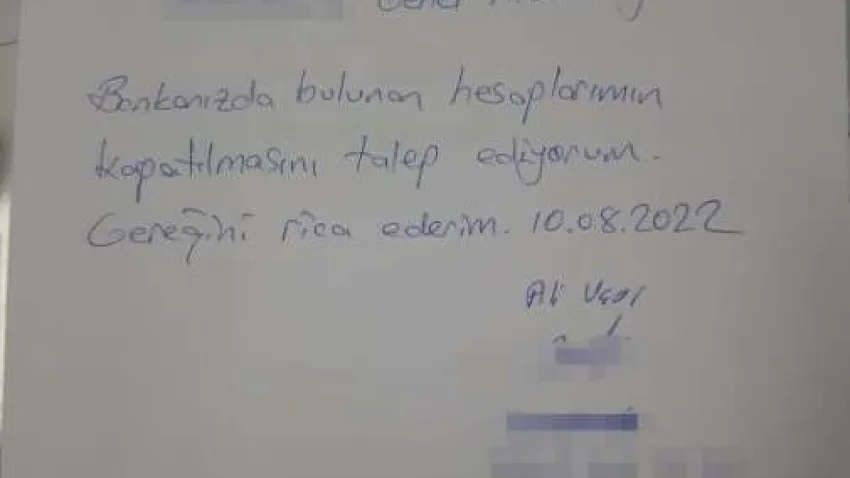 Genel
Bankanızda bulunan hesaplarımın
kapatılmasını talep ediyorum.
Gereğini rica ederim. 10.08.2022
Ali Uçar